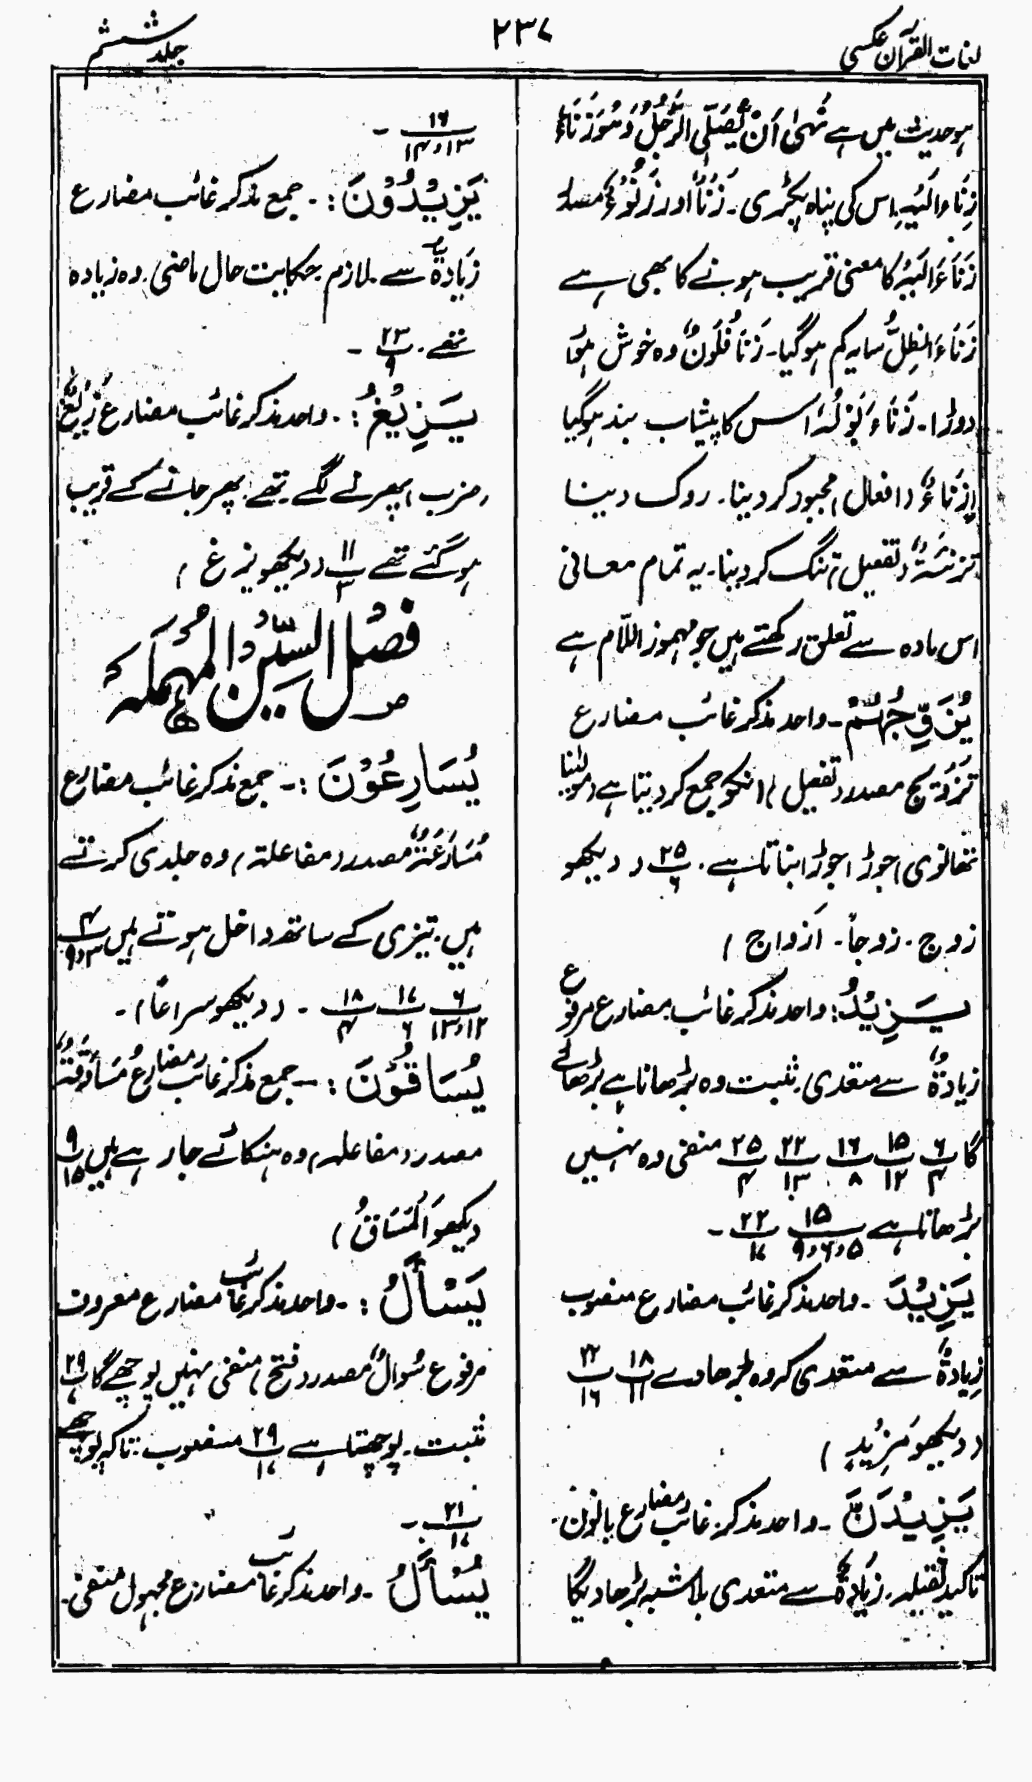 لغات القرآن عکسی
۲۳۷
جلد ششم
ہو حدیث میں ہے نَہٰی اَنْ یُّصَلِّیَ الرَّجُلُ وَهُوَ زَنَاءٌ
زِنَاءً اِلَیْہِ اس کی پناہ پکڑی۔ زَنْأً اور زُنُوْءٌ مصدر
زَنَاءَ اِلَیْہِ کا معنی قریب ہونے کا بھی ہے
زَنَاءَ الظِلُّ سایہ کم ہوگیا۔ زَنَاَ فُلَانٌ وہ خوش ہوا
دوڑا۔ زَنَاءَ بَوْلُہٗ اس کا پیشاب بند ہوگیا
اِزْنَاءٌ (افعال) مجبور کر دینا۔ روک دینا
تزنئۃٌ (تفعیل) تنگ کر دینا۔ یہ تمام معانی
اس مادہ سے تعلق رکھتے ہیں جو مہموز اللام ہے
یُزَوِّجُہُمْ۔ واحد مذکر غائب مضارع
تَزْوِیْجٌ مصدر (تفعیل) انکو جمع کر دیتا ہے (مولٰنا
تھانوی) جوڑا جوڑا بناتا ہے۔ ۲۵/۶ (دیکھو
زوج۔ زوجاً۔ اَزواج)
یَزِیْدُ: واحد مذکر غائب مضارع مرفوع
زیادۃٌ سے متعدی۔ مثبت وہ بڑھاتا ہے بڑھائے
گا ۶/۴ ۱۵/۱۲ ۱۶/۸ ۲۲/۱۳ ۲۵/۴ منفی وہ نہیں
بڑھاتا ہے ۱۵/۵،۶،۹ ۲۲/۱۷ ۔
یَزِیْدَ ۔ واحد مذکر غائب مضارع منصوب
زِیادۃٌ سے متعدی کہ وہ بڑھا دے ۱۸/۱۱ ۲۲/۱۶
(دیکھو مَزِیْدٍ)
یَزِیْدَنَّ ۔ واحد مذکر غائب مضارع بانون
تاکید ثقیلہ۔ زِیَادَۃٌ سے متعدی بلا شبہ بڑھا دیگا
۱۶/۱۳،۱۴ ۔
یَزِیْدُوْنَ :۔ جمع مذکر غائب مضارع
زِیَادَۃٌ سے لازم بحکایت حال ماضی۔ وہ زیادہ
تھے۔ ۲۳/۹ ۔
یَزِیْغُ :۔ واحد مذکر غائب مضارع زَیْغٌ
(ضرب) پھرنے لگے تھے۔ پھر جانے کے قریب
ہوگئے تھے ۱۱/۳ (دیکھو نزغ)
فصل السین المہملہ
یُسَارِعُوْنَ :۔ جمع مذکر غائب مضارع
مُسَارَعَۃٌ مصدر (مفاعلۃ) وہ جلدی کرتے
ہیں۔ تیزی کے ساتھ داخل ہوتے ہیں ۴/۳،۹
۶/۱۲،۱۳ ۱۷/۶ ۱۸/۴ ۔ (دیکھو سراعًا)۔
یُسَاقُوْنَ :۔ جمع مذکر غائب مضارع مُسَاوَقَۃٌ
مصدر (مفاعلہ) وہ ہنکائے جا رہے ہیں ۹/۱۵
دیکھو اَلْمَسَاقُ)
یَسْأَلُ :۔ واحد مذکر غائب مضارع معروف
مرفوع سُوالٌ مصدر (فتح) منفی نہیں پوچھے گا ۲۹/۷
مثبت۔ پوچھتا ہے ۲۹/۱۷ منصوب: تاکہ پوچھے
۲۱/۱۷ ۔
یُسْأَلُ ۔ واحد مذکر غائب مضارع مجہول منفی۔